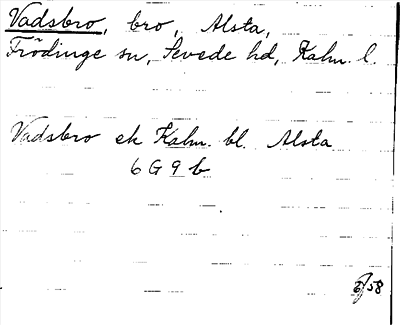 Vadsbro, bro, Alsta,
Frödinge sn, Sevede hd, Kalm. l.
Vadsbro ek Kalm. bl. Alsta
6 G 9 b
58